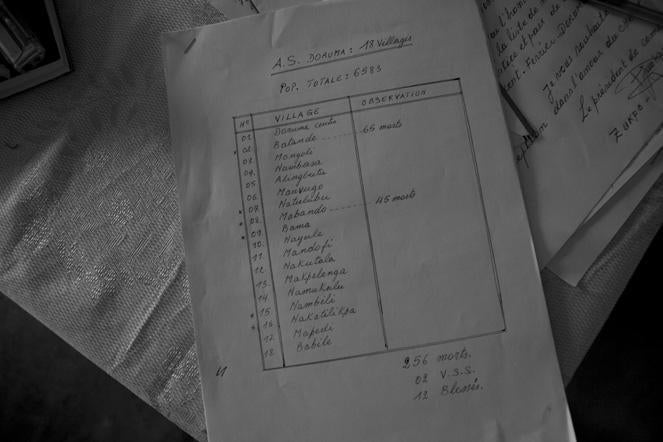 A.S. DORUMA : 18 Villages
POP. TOTALE : 6583
N° VILLAGE OBSERVATION
01. Doruma centre
02. Batande ........ 65 morts
03. Mangoli
04. Nambasa
05.
06. Manvugo
07. Natulubu
08. Mabando ........ 45 morts
09. Bama
10. Nagule
11. Mandofi
12. Nakutala
13. Makpelenga
14. Namukulu
15. Nambili
16. Nakatilikpa
17.
18. Babile
256 morts.
02 V.S.S.
12 Blessés.
la liste de
et pais de
Je vous souhaite
dans l'amour du
Le président de